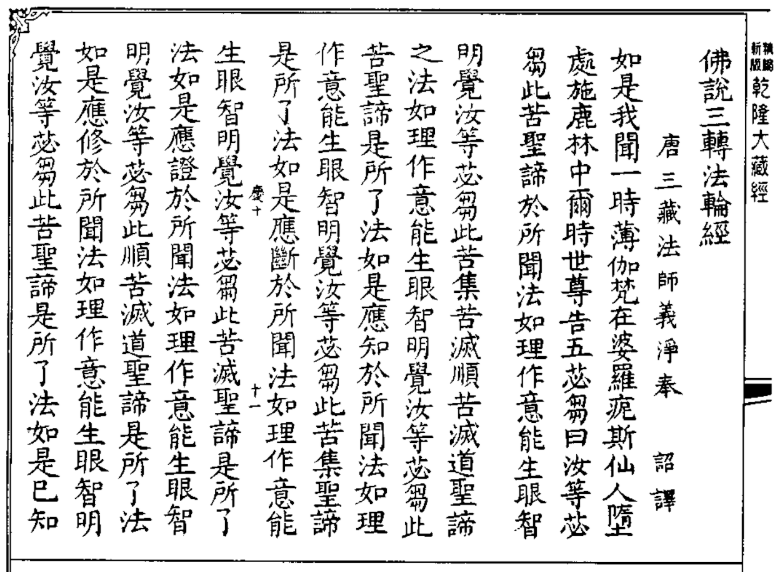 精縮
新版
乾隆大藏經
佛說三轉法輪經
唐三藏法師義淨奉 詔譯
如是我聞一時薄伽梵在婆羅痆斯仙人墮
處施鹿林中爾時世尊告五苾芻曰汝等苾
芻此苦聖諦於所聞法如理作意能生眼智
明覺汝等苾芻此苦集苦滅順苦滅道聖諦
之法如理作意能生眼智明覺汝等苾芻此
苦聖諦是所了法如是應知於所聞法如理
作意能生眼智明覺汝等苾芻此苦集聖諦
是所了法如是應斷於所聞法如理作意能
慶十
十一
生眼智明覺汝等苾芻此苦滅聖諦是所了
法如是應證於所聞法如理作意能生眼智
明覺汝等苾芻此順苦滅道聖諦是所了法
如是應修於所聞法如理作意能生眼智明
覺汝等苾芻此苦聖諦是所了法如是已知